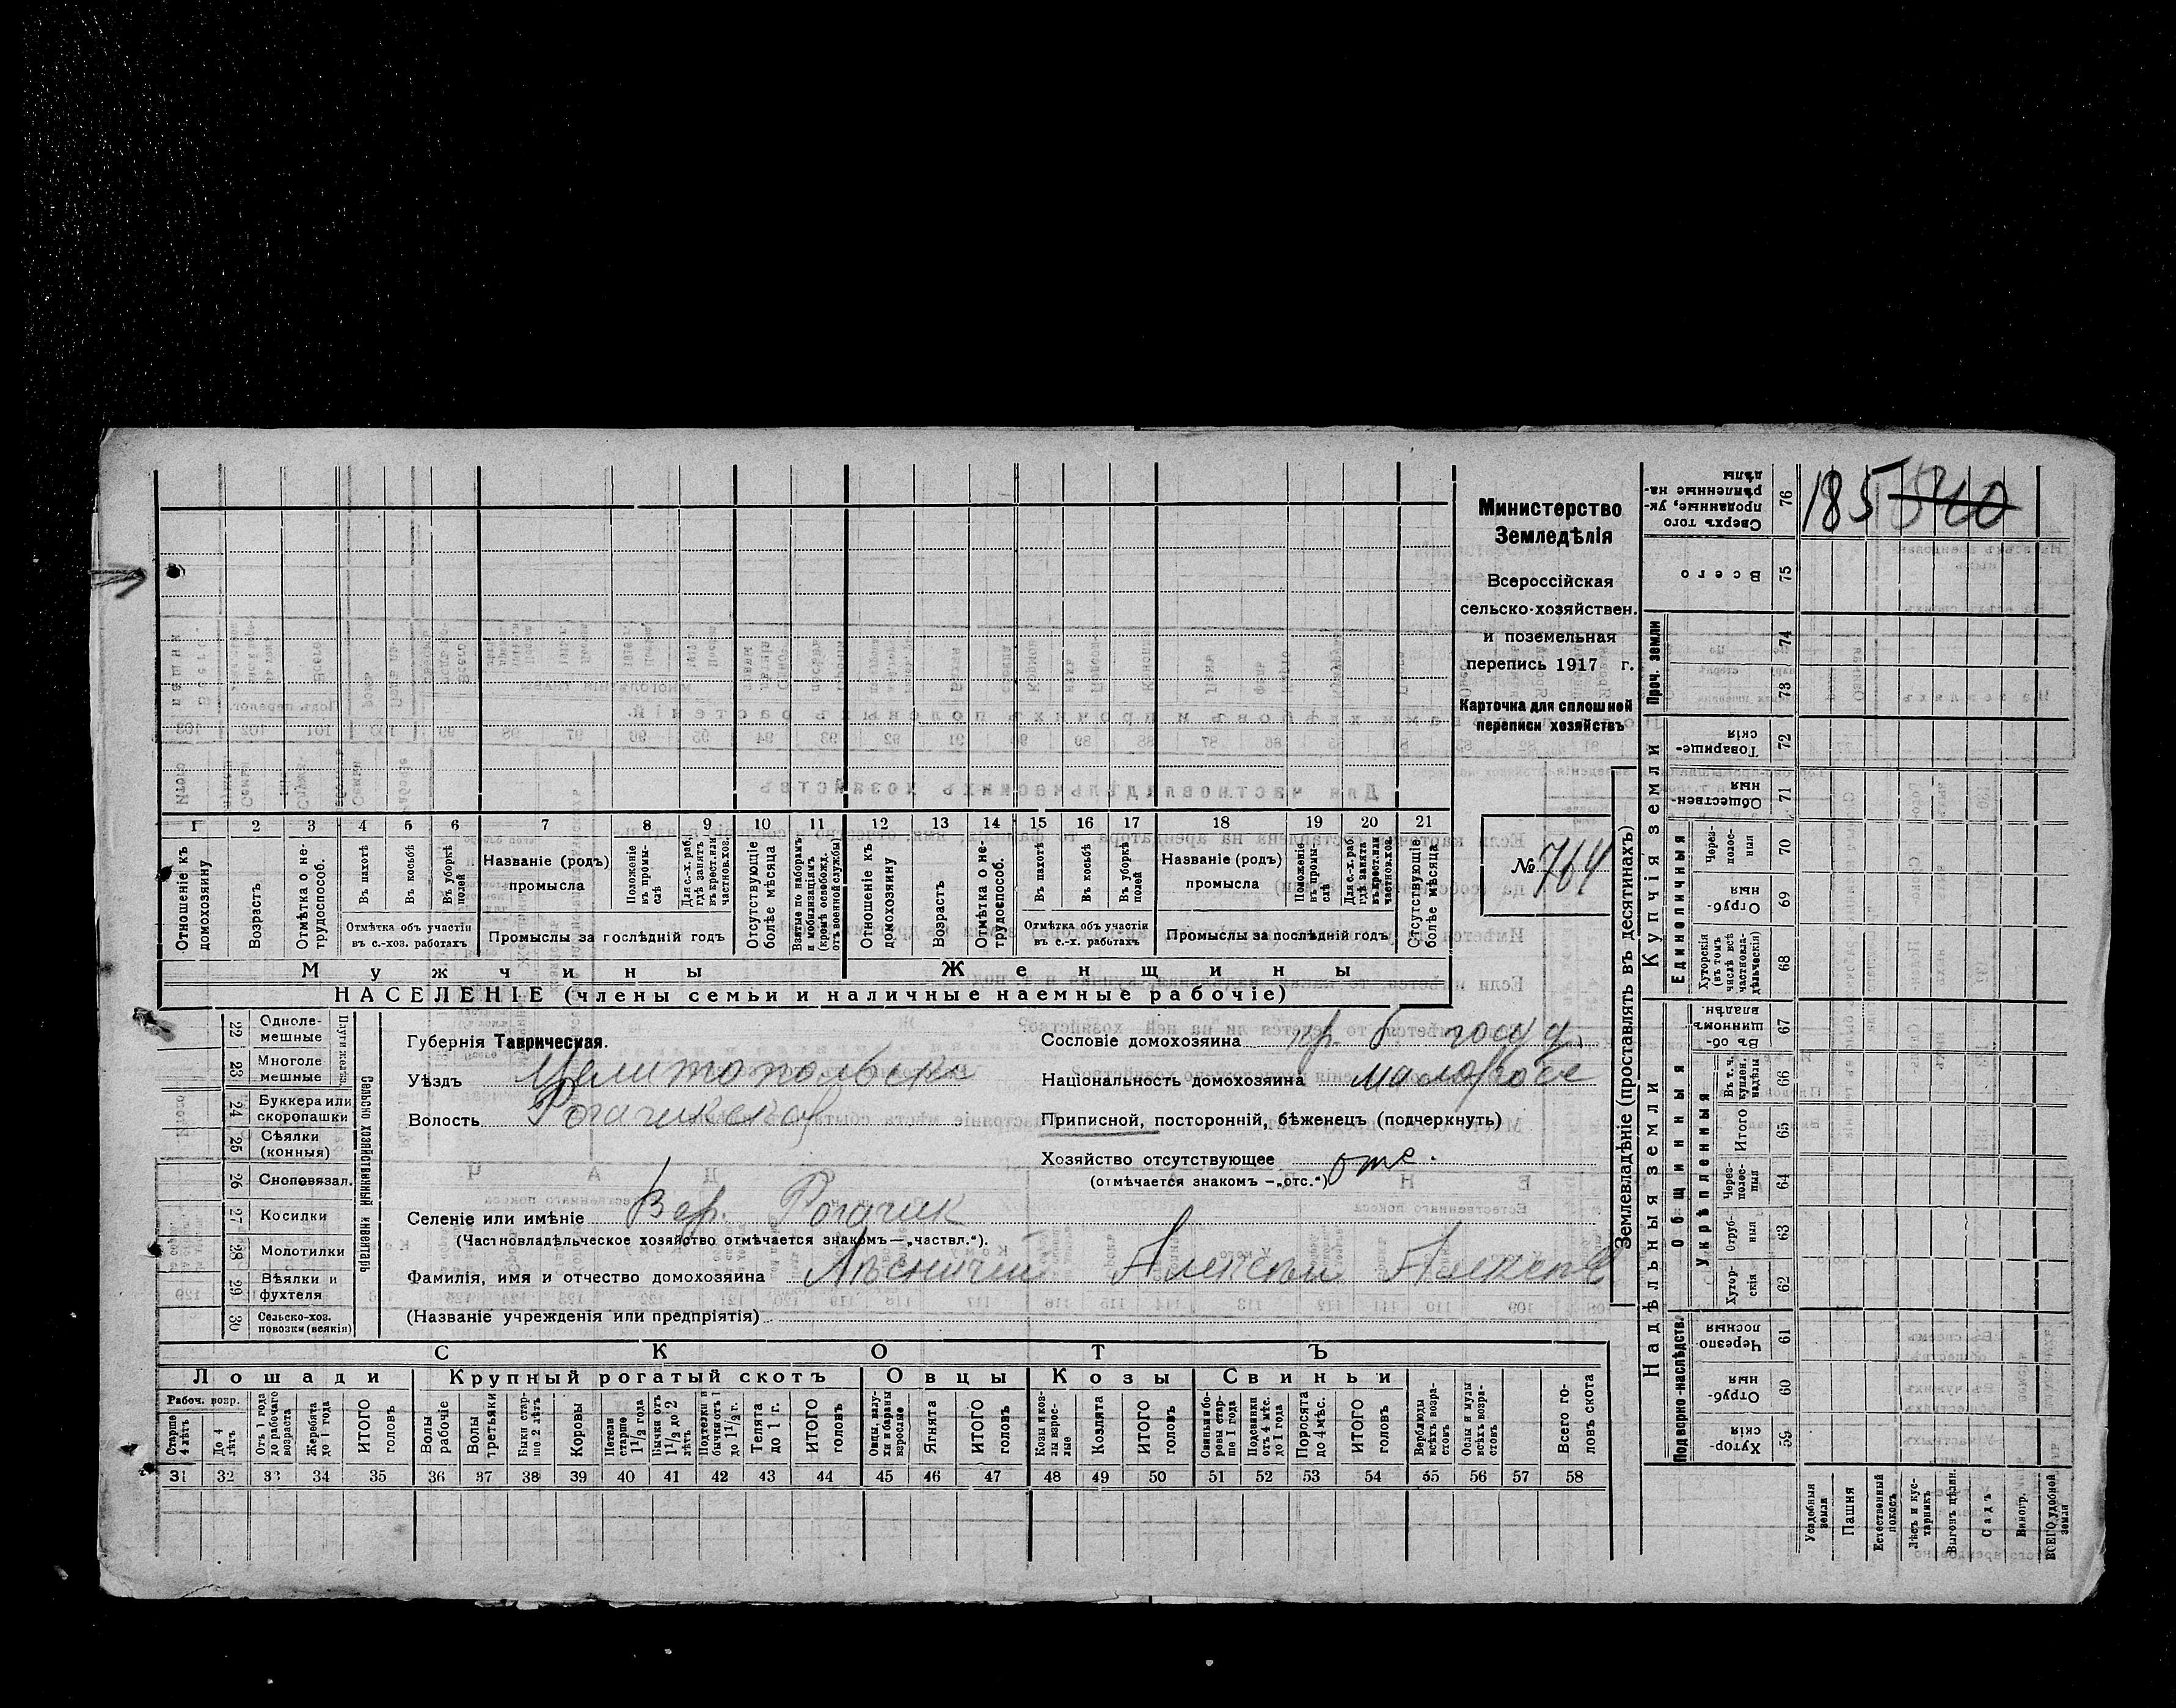 Министерство
Земледѣлія
Всероссійская
сельско-хозяйствен.
и поземельная
перепись 1917 г.
Карточка для сплошной
переписи хозяйствъ
№ 764
185 540
1 2 3 4 5 6 7 8 9 10 11 12 13 14 15 16 17 18 19 20 21
Отношеніе къ домохозяину
Возрастъ
Отмѣтка о не-трудоспособ.
Въ пахотѣ
Въ косьбѣ
Въ уборкѣ полей
Отмѣтка объ участіи въ с.-хоз. работахъ
Названіе (родъ) промысла
Положеніе въ промы-слѣ
Для с.-х. раб. гдѣ занятъ въ крест. или частнов. хоз.
Промыслы за послѣдній годъ
Отсутствующіе болѣе мѣсяца
Взятые по наборамъ и мобилизаціямъ (кромѣ освобожд. отъ военной службы)
Отношеніе къ домохозяину
Возрастъ
Отмѣтка о не-трудоспособ.
Въ пахотѣ
Въ косьбѣ
Въ уборкѣ полей
Отмѣтка объ участіи въ с.-х. работахъ
Названіе (родъ) промысла
Положеніе въ промы-слѣ
Для с.-х. раб. гдѣ занята въ крест. или частнов. хоз.
Промыслы за послѣдній годъ
Отсутствующіе болѣе мѣсяца
Мужчины Женщины
НАСЕЛЕНІЕ (члены семьи и наличные наемные рабочіе)
Сельско хозяйственный инвентарь
Плуги желѣз.
22 Одноле-мешные
23 Многоле мешные
24 Буккера или скоропашки
25 Сѣялки (конныя)
26 Сноповязал.
27 Косилки
28 Молотилки
29 Вѣялки и фухтеля
30 Сельско-хоз. повозки (всякія)
Губернія Таврическая.
Уѣздъ Мелитопольскі
Волость Рогачикская
Сословіе домохозяина кр. б госуд.
Національность домохозяина малоросс
Приписной, посторонній, бѣженецъ (подчеркнуть)
Хозяйство отсутствующее отс.
(отмѣчается знакомъ —„отс.“)
Селеніе или имѣніе Вер. Рогачик
(Частновладѣльческое хозяйство отмѣчается знакомъ—„частвл.“).
Фамилія, имя и отчество домохозяина Лѣсничій Алексѣй Алексѣе
(Названіе учрежденія или предпріятія)
СКОТЪ
Лошади Крупный рогатый скотъ Овцы Козы Свиньи
Рабоч. возр.
Старше 4 лѣтъ
До 4 лѣтъ
Отъ 1 года до рабочаго возраста
Жеребята до 1 года
ИТОГО головъ
Волы рабочіе
Волы третьяки
Быки стар-ше 2 лѣтъ
Коровы
Нетели старше 1 1/2 года
Бычки отъ 1 1/2 до 2 лѣтъ
Подтелки и бычки отъ 1 до 1 1/2 г.
Телята до 1 г.
ИТОГО головъ
Овцы, валу-хи и бараны взрослые
Ягнята
ИТОГО головъ
Козы и коз-лы взрос-лые
Козлята
ИТОГО головъ
Свиньи и бо-ровы стар-ше 1 года
Подсвинки отъ 4 мѣс. до 1 года
Поросята до 4 мѣс.
ИТОГО головъ
Верблюды всѣхъ возра-стовъ
Ослы и мулы всѣхъ возра-стовъ
Всего го-ловъ скота
31 32 33 34 35 36 37 38 39 40 41 42 43 44 45 46 47 48 49 50 51 52 53 54 55 56 57 58
Землевладѣніе (проставлять въ десятинахъ)
Надѣльныя земли Купчія земли
Подворно-наслѣдств. Общинныя Укрѣпленныя Единоличныя Проч. земли
59 Хутор-скія
60 Отруб-ныя
61 Черезпо лосныя
62 Хутор-скія
63 Отруб-ныя
64 Через-полос-ныя
65 Итого
66 Въ т. ч. куплен. надѣлы
67 Въ об-щинном. владѣн.
68 Хуторскія (въ томъ числѣ всѣ частновла-дѣльческія)
69 Отруб-ныя
70 Через-полос-ныя
71 Обществен-ныя
72 Товарище-скія
73
74
75 Всего
76 Сверхъ того проданные, ук-рѣпленные на-дѣлы
Усадебныя земли
Пашня
Естественный покосъ
Лѣсъ и кус-тарникъ
Выгонъ цѣлин.
Садъ
Виногр.
ВСЕГО удобной земли